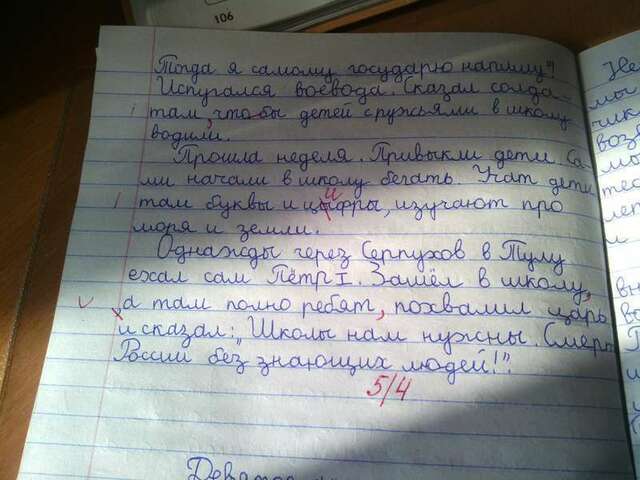 106
Тогда я самому государю напишу"!
Испугался воевода. Сказал солда-
там, чтобы детей с ружьями в школу
водили.
Прошла неделя. Привыкли дети. Са-
ми начали в школу бегать. Учат дети
там буквы и цифры, изучают про
моря и земли.
Однажды через Серпухов в Тулу
ехал сам Пётр I. Зашёл в школу,
а там полно ребят, похвалил царь
и сказал: „Школы нам нужны. Смерть
России без знающих людей!".
5/4